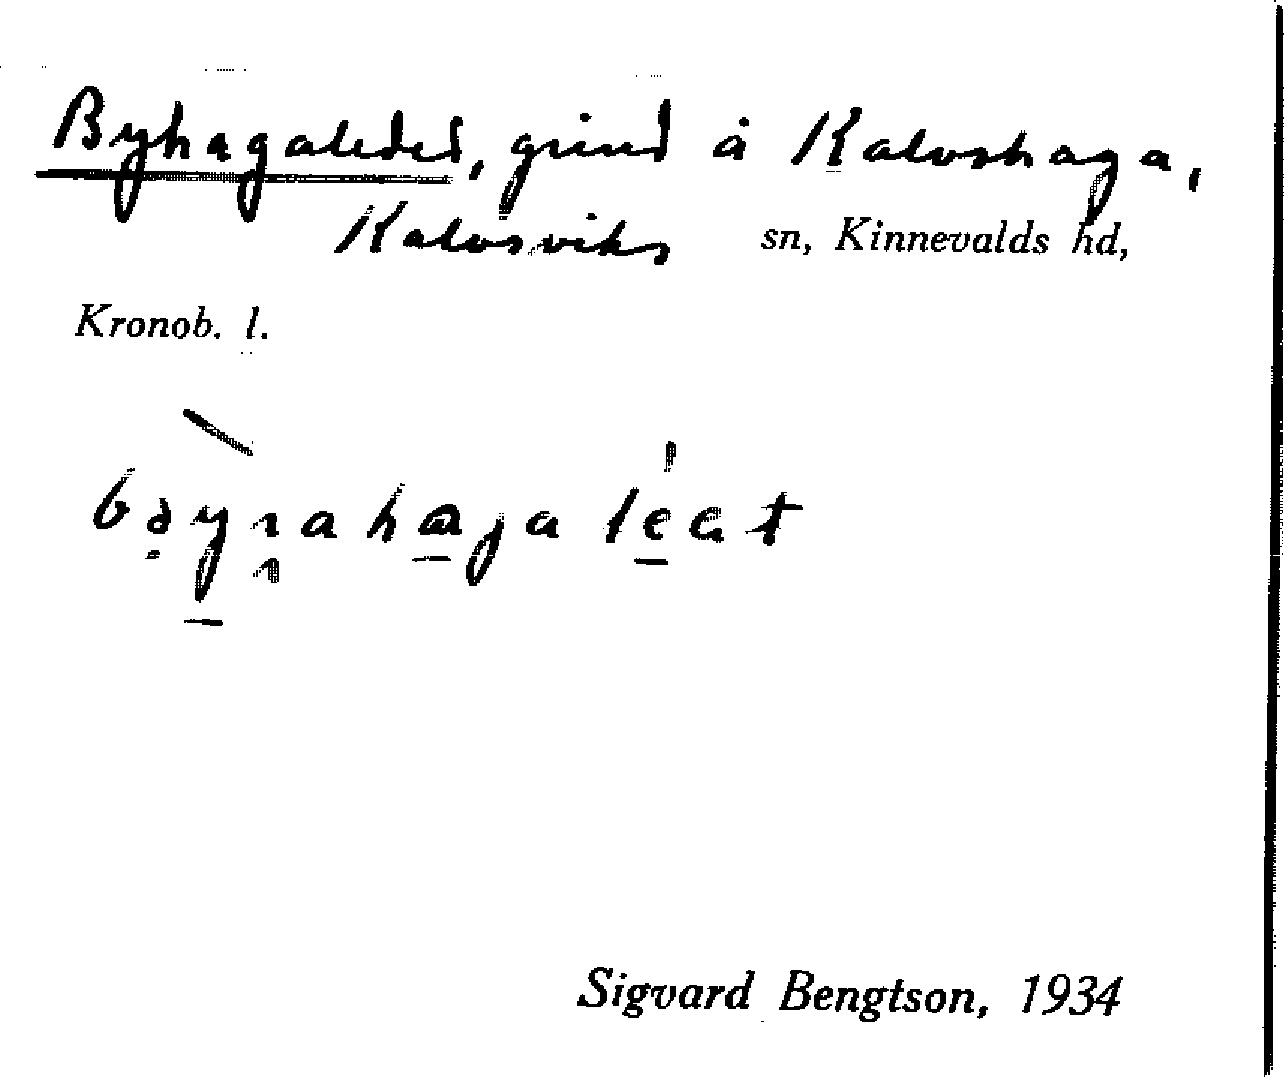 Byhagaledet, grind å Kalvshaga,
Kalvsviks sn, Kinnevalds hd,
Kronob. l.
Sigvard Bengtson, 1934